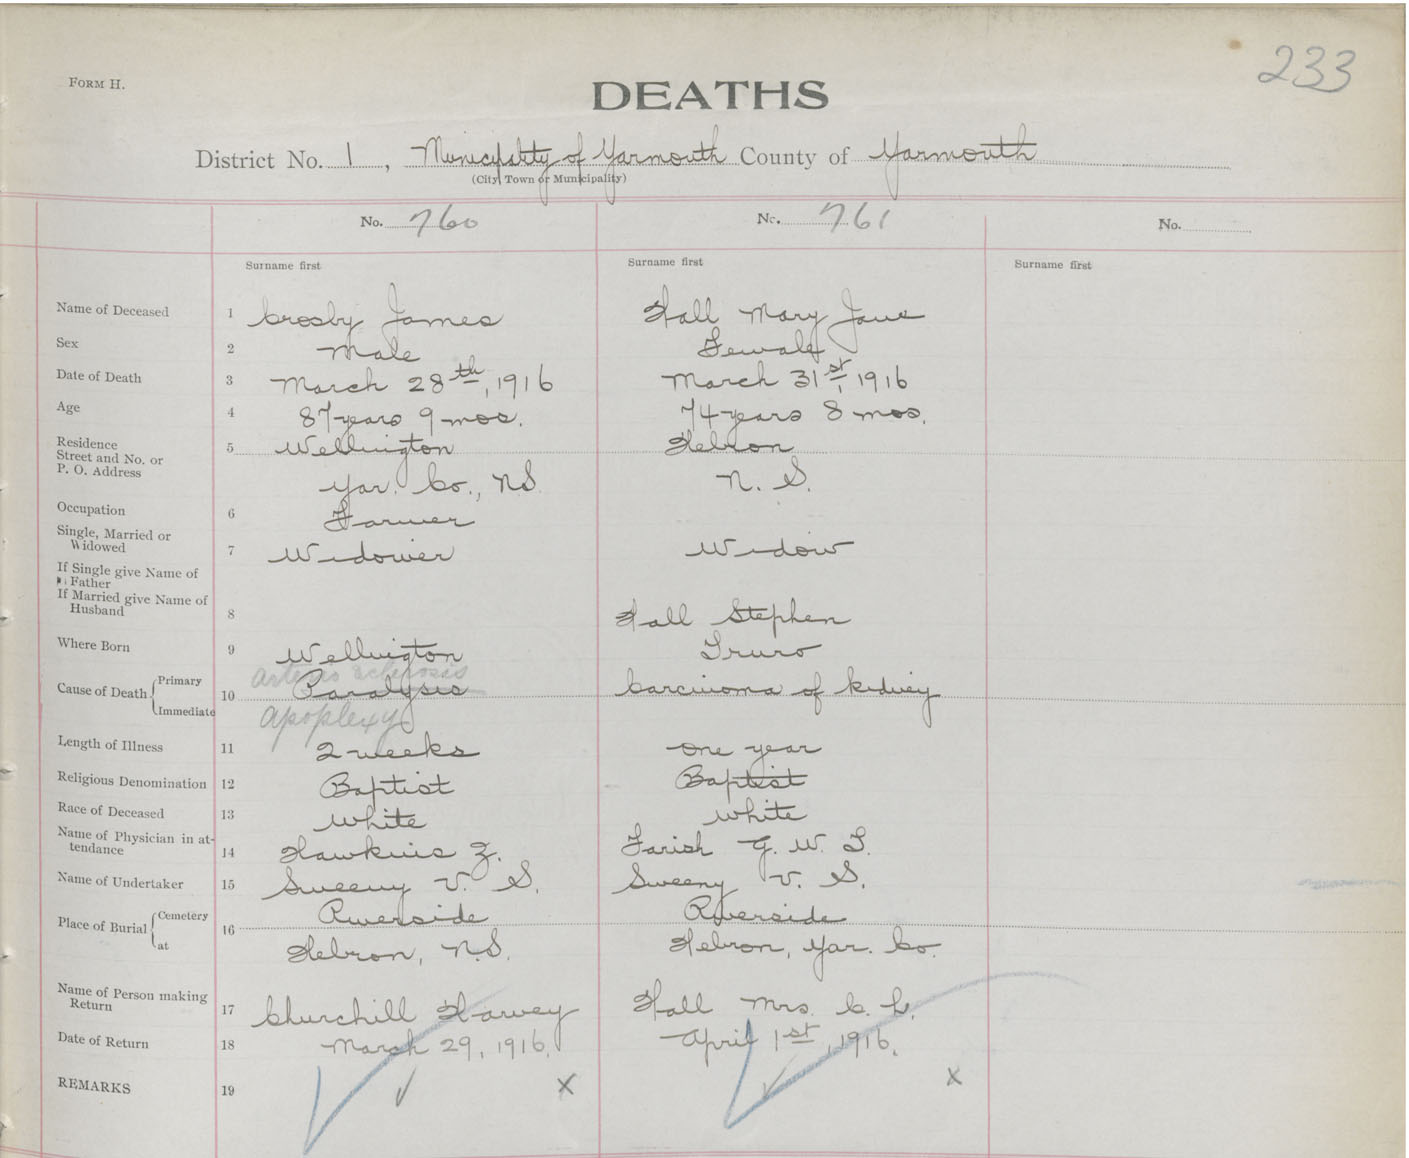 233
FORM H.
DEATHS
District No. 1, Municipality of Yarmouth County of Yarmouth
(City Town or Municipality)
No. 760 No. 761 No.
Surname first Surname first Surname first
Name of Deceased 1 Crosby James Hall Mary Jane
Sex 2 Male Female
Date of Death 3 March 28th, 1916 March 31st, 1916
Age 4 87 years 9 mos. 74 years 8 mos.
Residence
Street and No. or 5 Wellington Hebron
P. O. Address Yar. Co., N.S. N. S.
Occupation 6 Farmer
Single, Married or
Widowed 7 Widower Widow
If Single give Name of
Father
If Married give Name of
Husband 8 Hall Stephen
Where Born 9 Wellington Truro
arterio sclerosis
Cause of Death { Primary 10 Paralysis Carcinoma of kidney
Immediate apoplexy
Length of Illness 11 2 weeks one year
Religious Denomination 12 Baptist Baptist
Race of Deceased 13 White White
Name of Physician in at-
tendance 14 Hawkins Z. Farish G. W. T.
Name of Undertaker 15 Sweeny V. S. Sweeny V. S.
Place of Burial { Cemetery 16 Riverside Riverside
at Hebron, N.S. Hebron, Yar. Co.
Name of Person making
Return 17 Churchill Harvey Hall Mrs. C. L.
Date of Return 18 March 29, 1916. April 1st, 1916.
REMARKS 19 ✓ x ✓ x